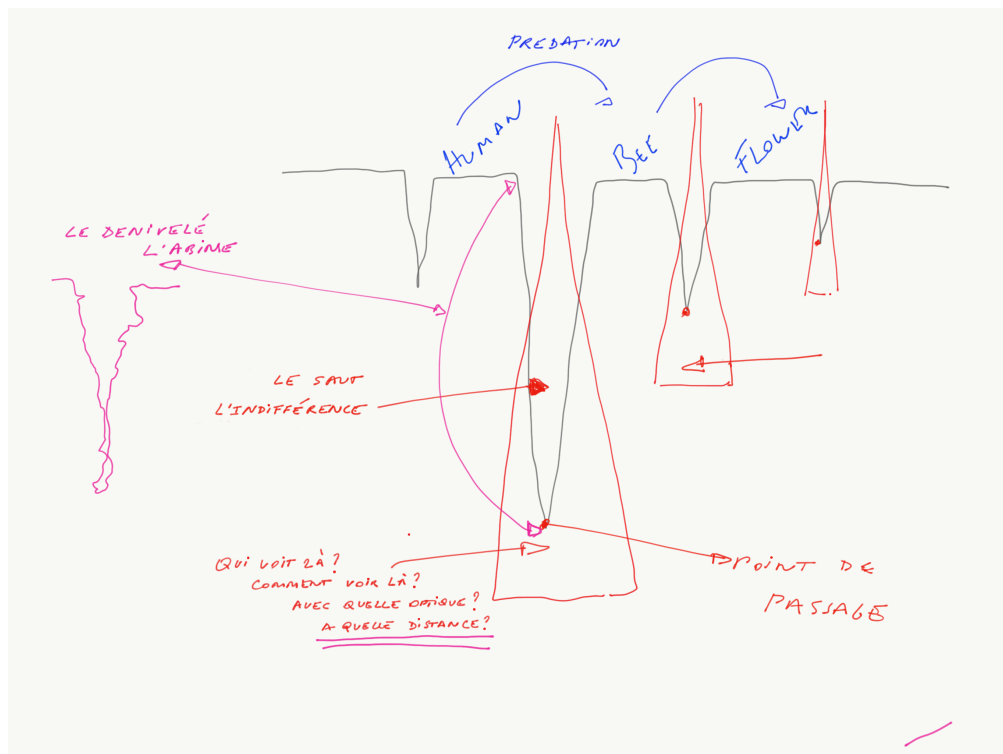 PREDATION
HUMAN
BEE
FLOWER
LE DENIVELÉ
L'ABIME
LE SAUT
L'INDIFFÉRENCE
QUI VOIT LÀ?
COMMENT VOIR LÀ?
AVEC QUELLE OPTIQUE?
A QUELLE DISTANCE?
POINT DE
PASSAGE